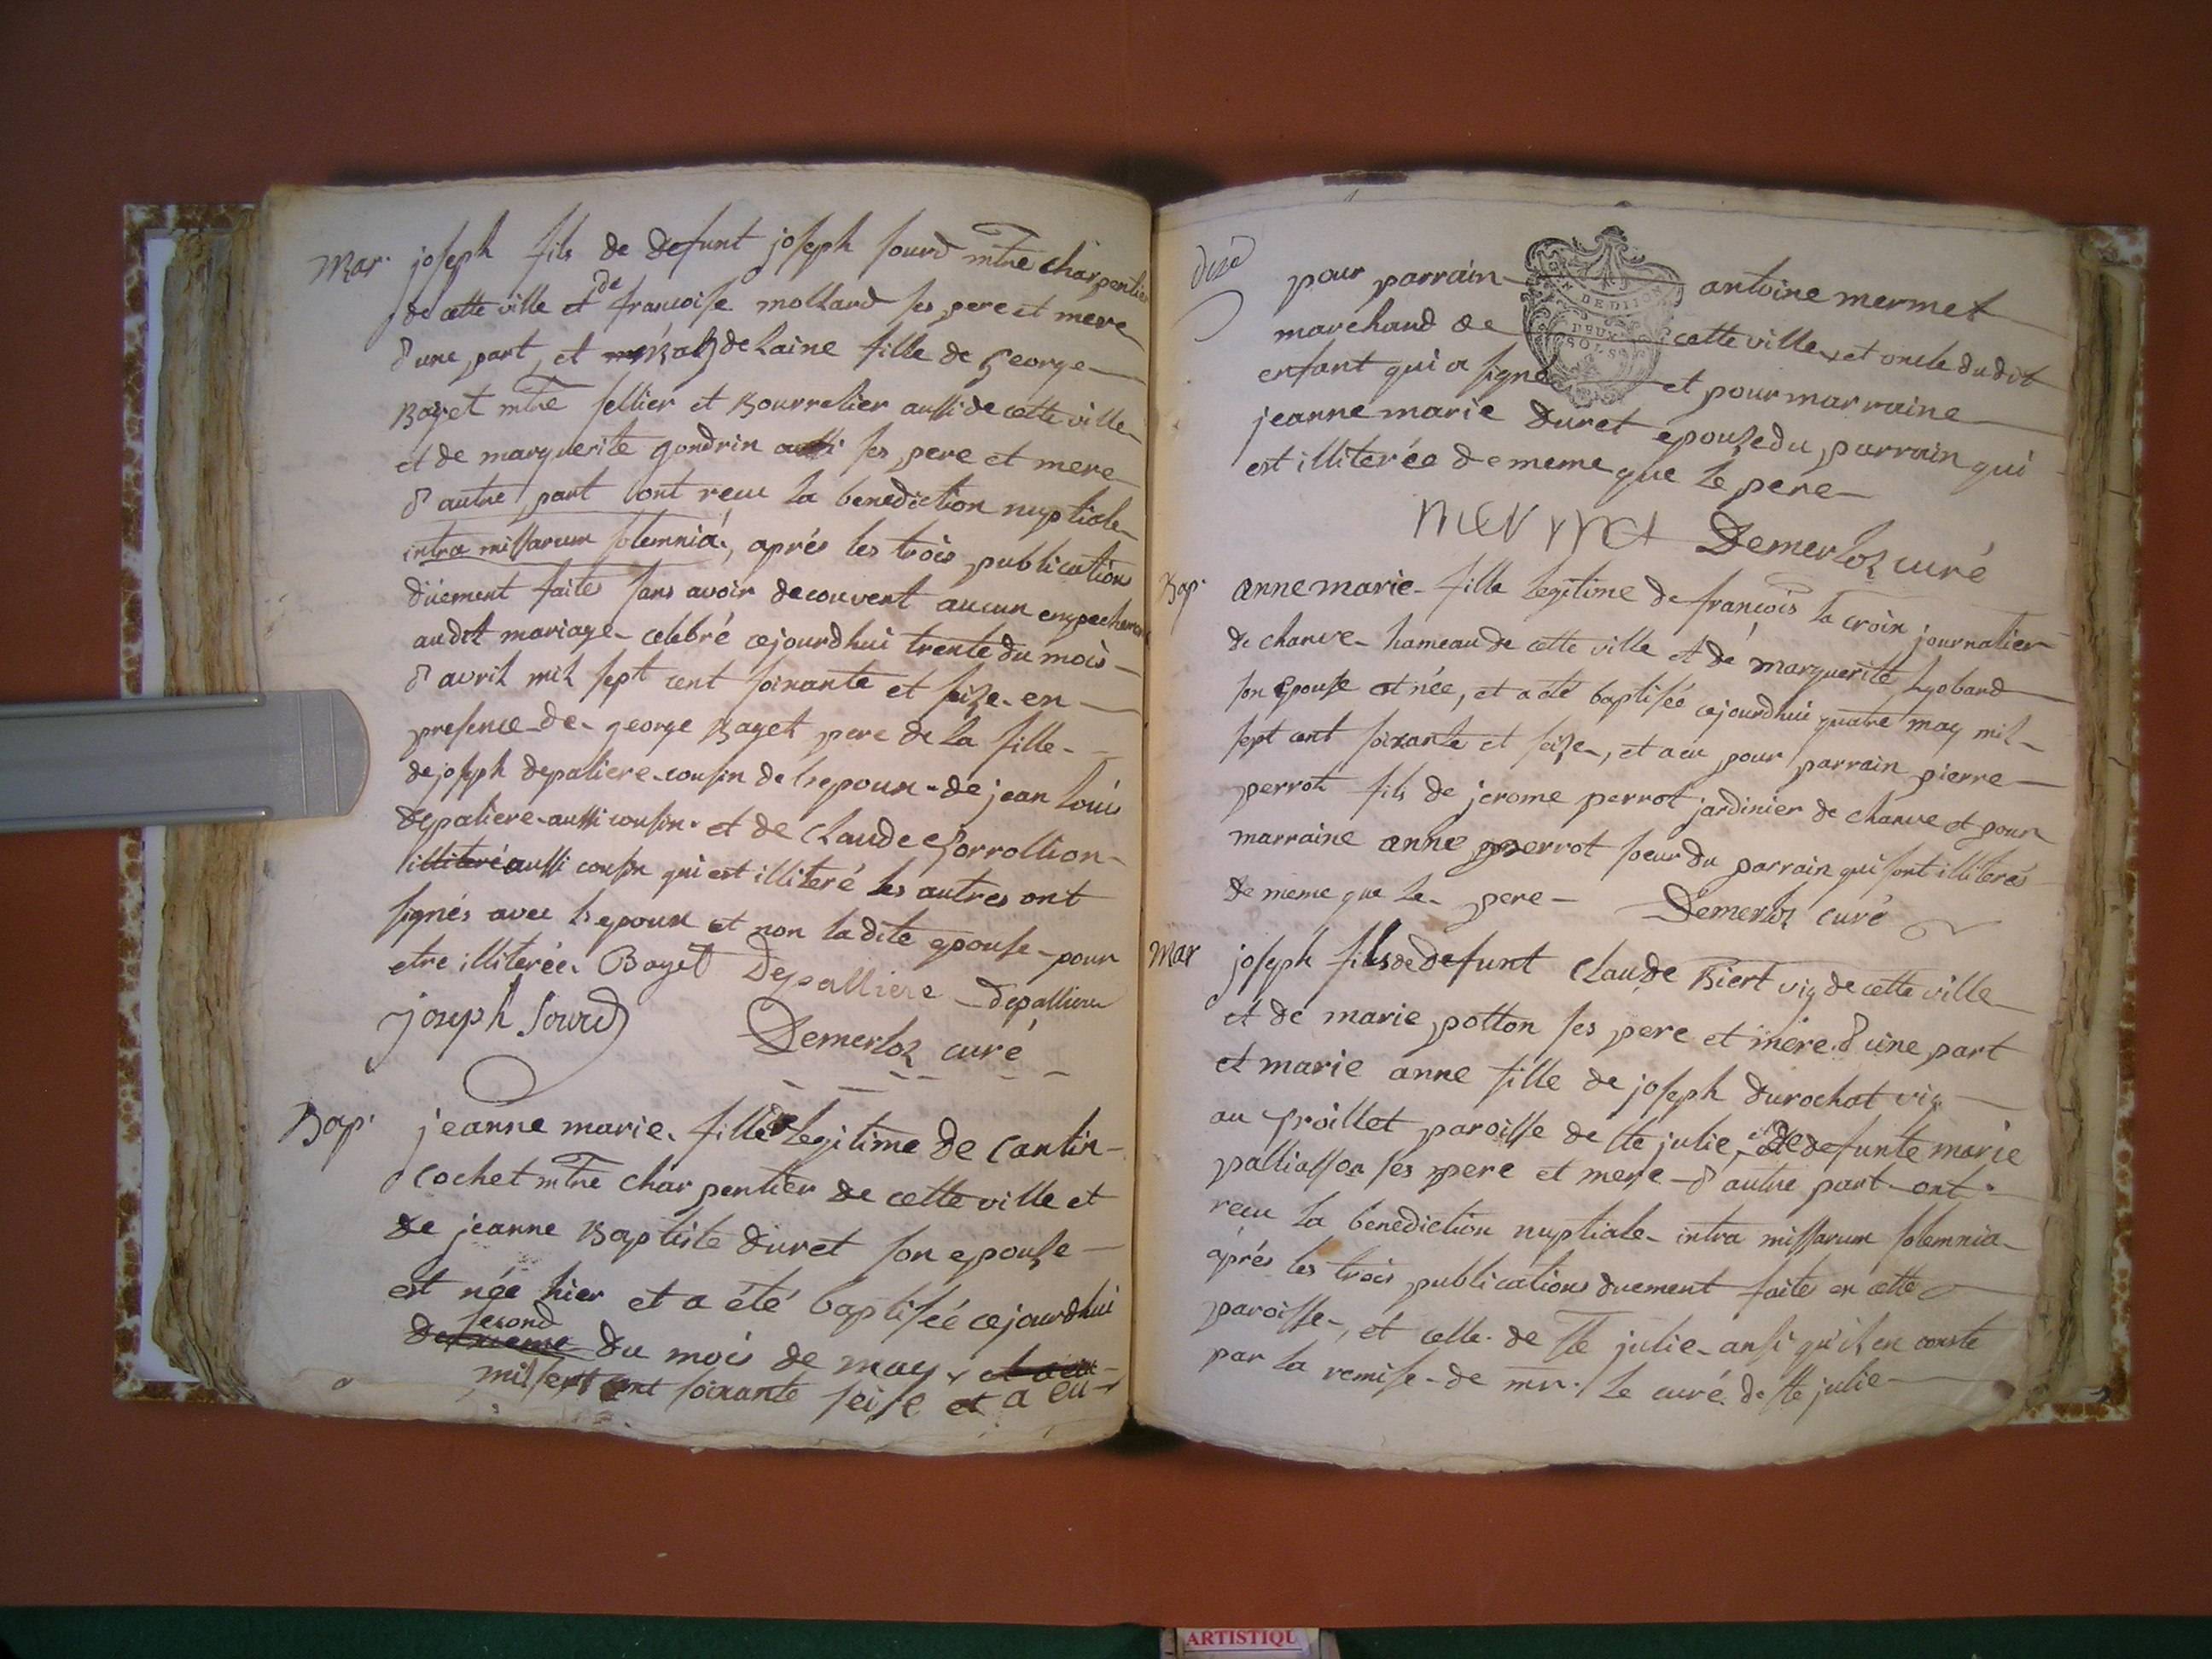 Mar. joseph fils de defunt joseph sourd mtre charpentier
de cette ville et de francoise mollard ses pere et mere
d'une part, et delaine fille de George
Bayet mtre sellier et Bourrelier aussi de cette ville
et de marguerite gondrin aussi ses pere et mere
d'autre part ont reçu la benediction nuptiale
intra missarum solemnia, aprés les trois publications
düement faites sans avoir decouvert aucun empechement
audit mariage celebré cejourdhui trente du mois
d'avril mil sept cent soixante et seize en
presence de george Bayet pere de la fille
de joseph depaliere cousin de l'epoux de jean louis
depaliere aussi cousin et de Claude
illiteré aussi cousin qui est illiteré les autres ont
signés avec l'epoux et non la dite epouse pour
etre illiterée. Bayet Depalliere depalliere
joseph Sourd Demerloz curé
Bap. jeanne marie fille legitime de Cantin
Cochet mtre charpentier de cette ville et
de jeanne Baptiste duret son epouse
est née hier et a été baptisée cejourdhui
second
deuxieme du mois de may et a eu
mil sept cent soixante seise et a eu
pour parrain antoine mermet
marchand de cette ville, et oncle dudit
DEUX SOLS
enfant qui a signé et pour marraine
jeanne marie duret epouze du parrain qui
est illiterée de meme que le pere
mermet Demerloz curé
Bap. anne marie fille legitime de francois la croix journalier
de charve hameau de cette ville et de marguerite Lyobard
son epouse est née, et a été baptisée cejourdhui quatre may mil
sept cent soixante et seize, et a eu pour parrain pierre
perrot fils de jerome perrot jardinier de charve et pour
marraine anne perrot soeur du parrain qui sont illiterés
de meme que le pere Demerloz curé
Mar joseph fils de defunt Claude Biert vig de cette ville
et de marie potton ses pere et mere d'une part
et marie anne fille de joseph durochat vig
au proillet paroisse de ste julie, et de defunte marie
palliasson ses pere et mere d'autre part ont
reçu la benediction nuptiale intra missarum solemnia
aprés les trois publications duement faites en cette
paroisse, et celle de ste julie ansi qu'il en conste
par la remise de mr. le curé de ste julie
ARTISTIQU